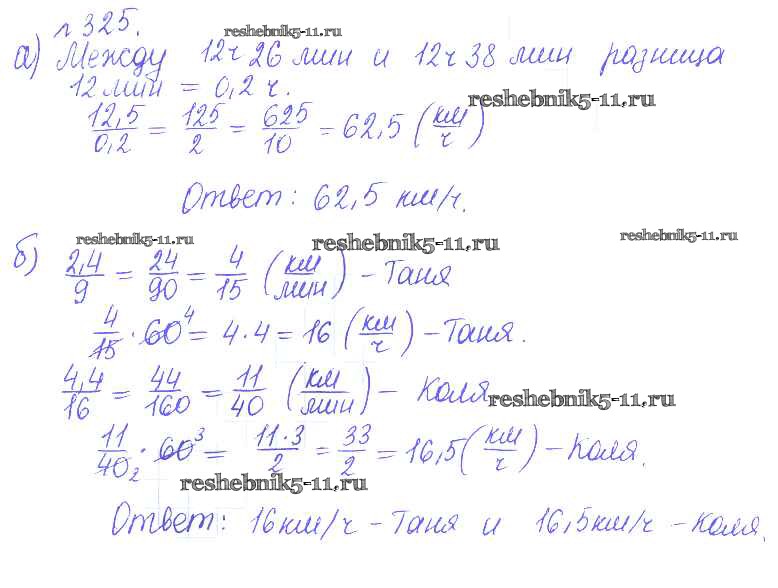 № 325.
reshebnik5-11.ru
а) Между 12ч 26 мин и 12ч 38 мин разница
12 мин = 0,2 ч.
reshebnik5-11.ru
12,5/0,2 = 125/2 = 625/10 = 62,5 (км/ч)
Ответ: 62,5 км/ч.
reshebnik5-11.ru reshebnik5-11.ru reshebnik5-11.ru
б) 2,4/9 = 24/90 = 4/15 (км/мин) – Таня
4/15 · 60 4 = 4·4 = 16 (км/ч) – Таня.
4,4/16 = 44/160 = 11/40 (км/мин) – Коля
reshebnik5-11.ru
11/40 2 · 60 3 = 11·3/2 = 33/2 = 16,5 (км/ч) – Коля.
reshebnik5-11.ru
Ответ: 16км/ч – Таня и 16,5км/ч – Коля.